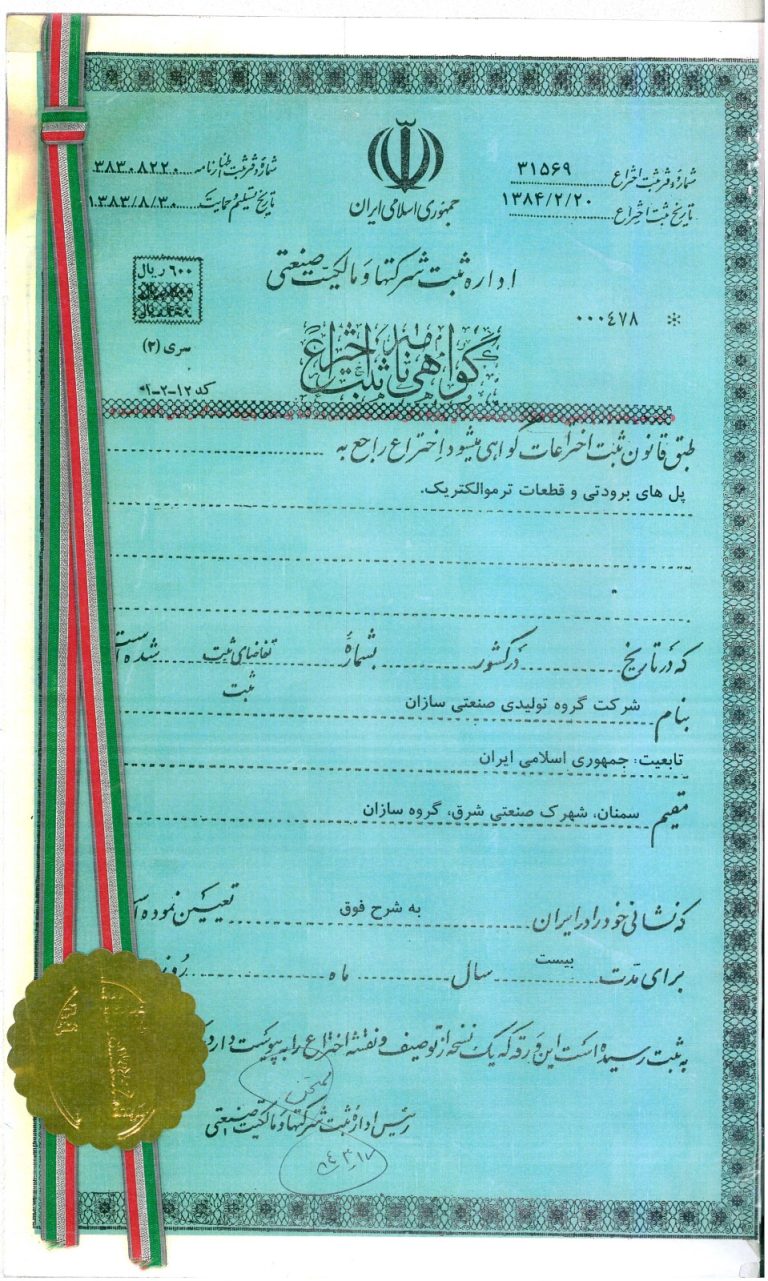 جمهوری اسلامی ایران
شماره و ثبت اختراع ۳۱۵۶۹
تاریخ ثبت اختراع ۱۳۸۴/۲/۲۰
شماره و ثبت اظهارنامه ۳۸۳۰۸۲۲۰
تاریخ تسلیم و حمایت ۱۳۸۳/۸/۳۰
اداره ثبت شرکتها و مالکیت صنعتی
۶۰۰ ریال
۰۰۰۴۷۸ *
سری (۲)
گواهی نامه ثبت اختراع
کد ۱۲-۲-۱
طبق قانون ثبت اختراعات گواهی میشود اختراع راجع به
پل های برودتی و قطعات ترموالکتریک.
که در تاریخ در کشور بشماره تقاضای ثبت شده است
ثبت
بنام شرکت گروه تولیدی صنعتی سازان
تابعیت: جمهوری اسلامی ایران
مقیم سمنان، شهرک صنعتی شرق، گروه سازان
که نشانی خود را در ایران به شرح فوق تعیین نموده
برای مدت بیست سال ماه روز
به ثبت رسیده است این ورقه که یک نسخه از توصیف و نقشه اختراع را به پیوست دارد
رئیس اداره ثبت شرکتها و مالکیت صنعتی